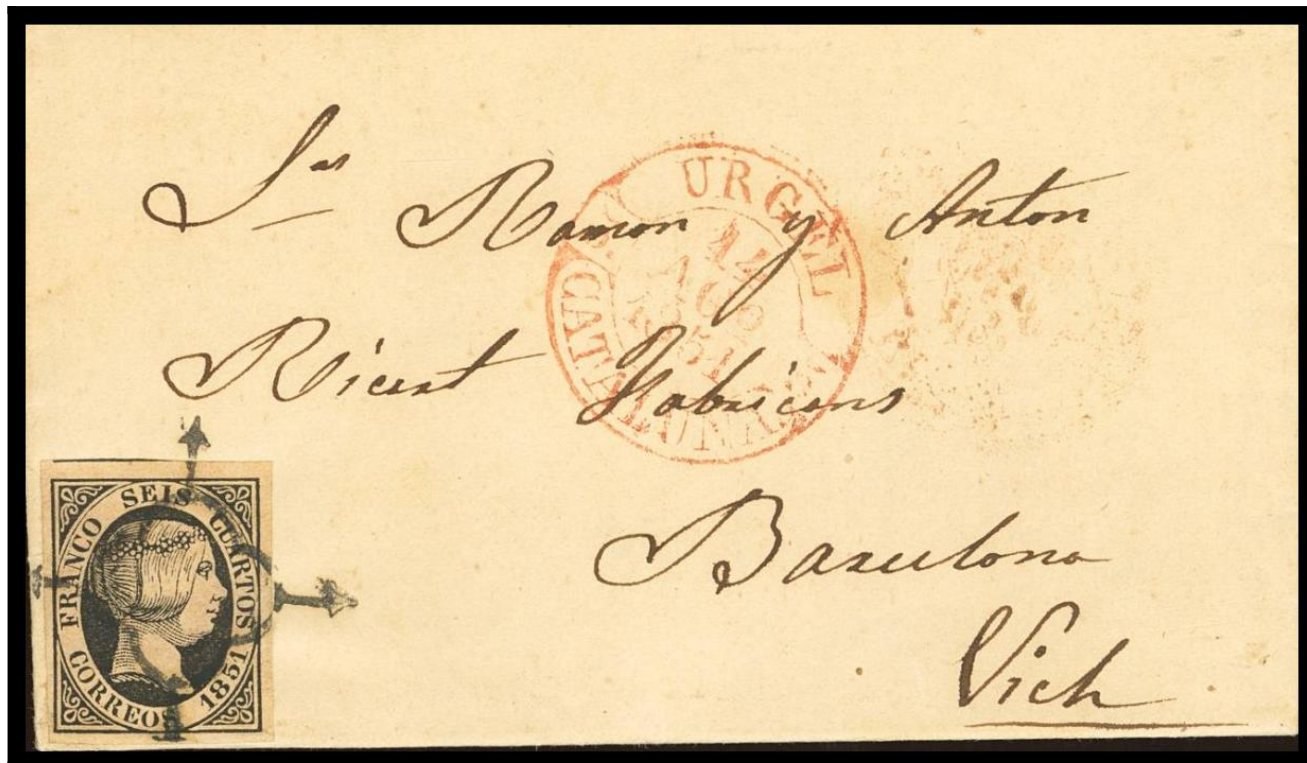 Sres Ramon y Anton
Ricart Fabricans
Barcelona
Vich
URGEL
CATALUÑA
14
AGO
1851
FRANCO SEIS CUARTOS
CORREOS 1851